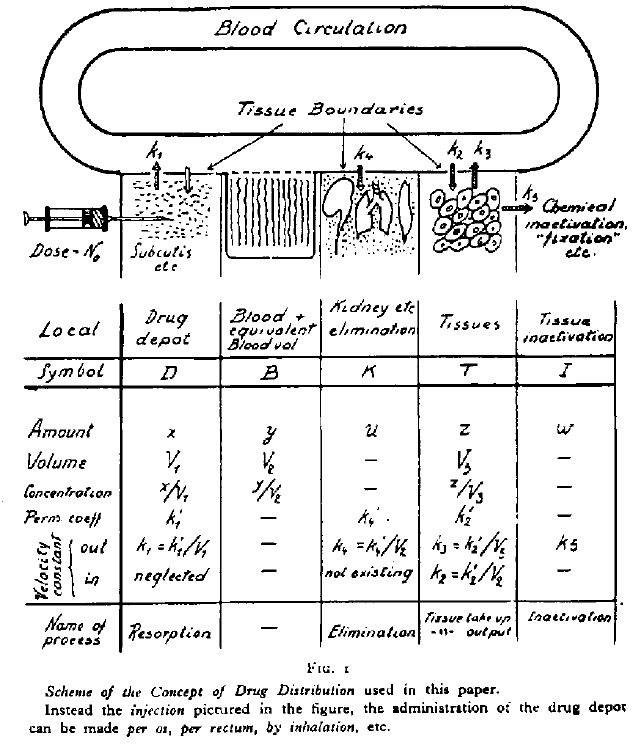 Blood Circulation
Tissue Boundaries
k₁ k₄ k₂ k₃
k₅
Chemical
inactivation,
"fixation"
etc.
Dose = N₀
Subcutis
etc
Local
Drug
depot
Blood +
equivalent
Blood vol
Kidney etc
elimination
Tissues
Tissue
inactivation
Symbol D B K T I
Amount x y u z w
Volume V₁ V₂ — V₃ —
Concentration x/V₁ y/V₂ — z/V₃ —
Perm coeff k₁' — k₄' k₂' —
Velocity
constant
out k₁ = k₁'/V₁ — k₄ = k₄'/V₂ k₃ = k₂'/V₃ k5
in neglected — not existing k₂ = k₂'/V₂ —
Name of
process
Resorption
—
Elimination
Tissue take up
-"- output
Inactivation
FIG. 1
Scheme of the Concept of Drug Distribution used in this paper.
Instead the injection pictured in the figure, the administration of the drug depot
can be made per os, per rectum, by inhalation, etc.